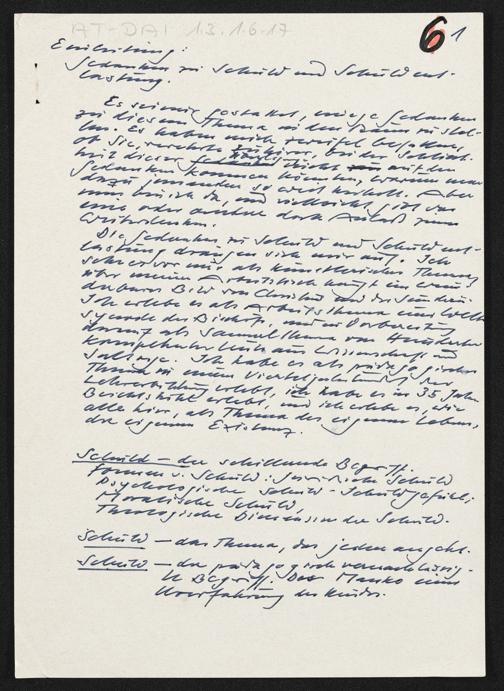 AT-DAI 13.1.6.17
6 1
Einleitung:
Gedanken zu Schuld und Schuldent-
lastung.
Es sei mir gestattet, einige Gedanken
zu diesem Thema in den Raum zu stel-
len. Es haben mich Zweifel befallen,
ob Sie, verehrte Zuhörer, bei der
mit dieser nicht auf den
Gedanken kommen könnten, warum man
dazu jemanden so weit herholt. Aber
nun bin ich da, und vielleicht gibt das
eine oder andere doch Anlaß zum
Weiterdenken.
Die Gedanken zu Schuld und Schuldent-
lastung drängen sich mir auf. Ich
sehe vor mir als künstlerisches Thema,
über meinem Arbeitstisch hängt ein wun-
derbares Bild von Christus und der Sünderin.
Ich erlebe es als Arbeitsthema einer Welt-
synode der Bischöfe, und in Vorbereitung
darauf als Sammelthema von Hunderten
kompetenter Leute aus Wissenschaft und
Seelsorge. Ich habe es als pädagogisches
Thema in einem Vierteljahrhundert der
Lehrerbildung erlebt, ich habe es in 35 Jahren
Beichtstuhl erlebt, und ich erlebe es, wie
alle hier, als Thema des eigenen Lebens,
der eigenen Existenz.
Schuld - der schillernde Begriff.
Formen v. Schuld: Juristische Schuld
Psychologische Schuld - Schuldgefühl,
Moralische Schuld,
Theologische Dimension der Schuld.
Schuld - das Thema, das jeden angeht.
Schuld - der pädagogisch vernachlässig-
te Begriff. Das Manko einer
Überfahrung des Kindes.